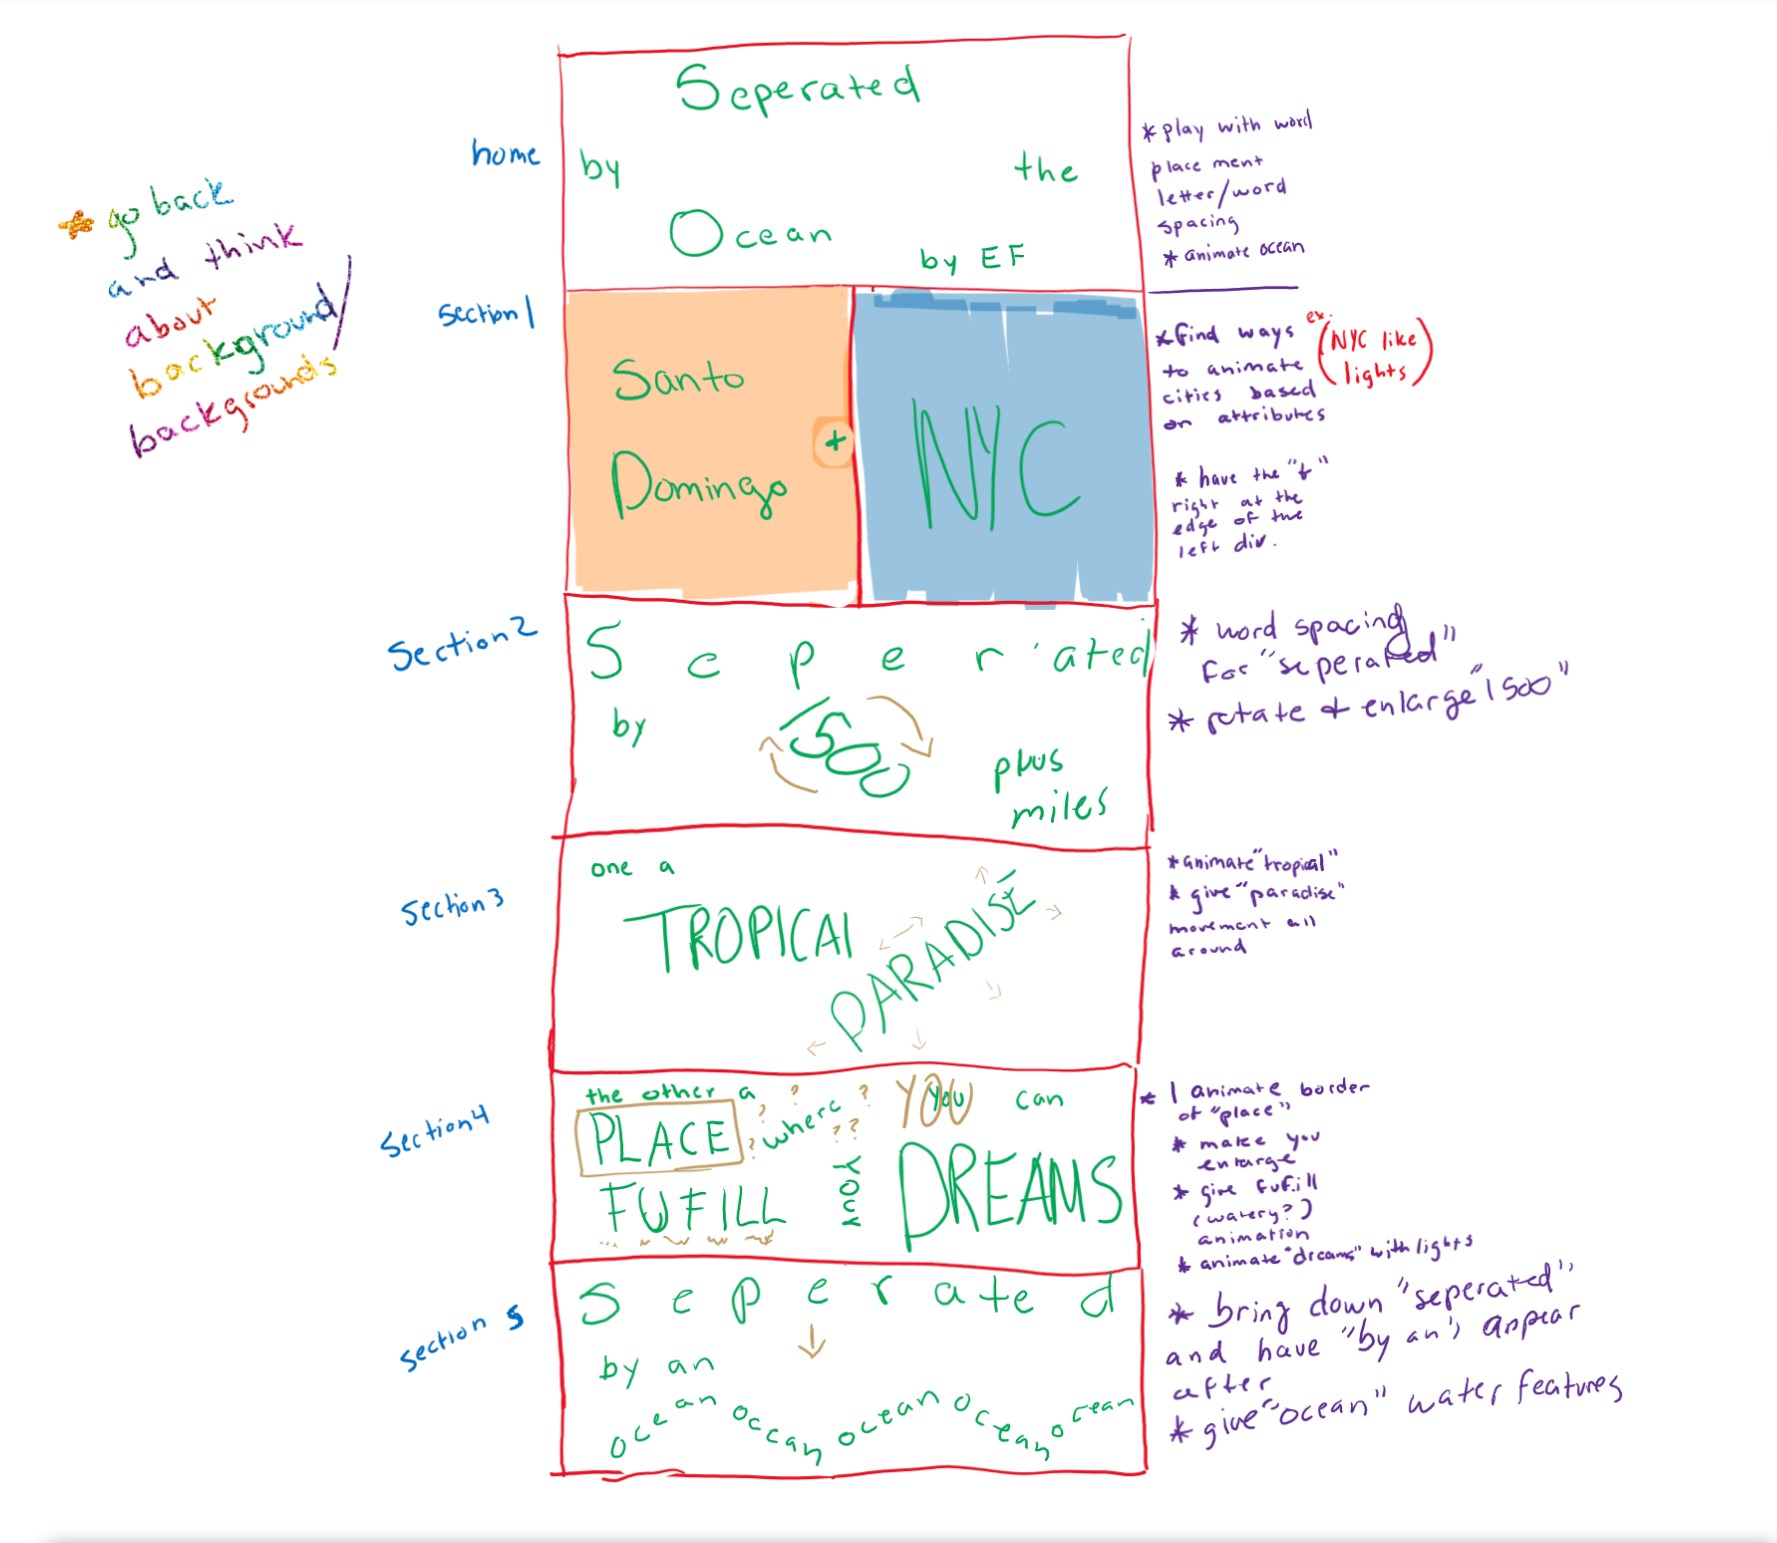 Seperated
by the
Ocean
by EF
home
* play with word
place ment
letter/word
spacing
* animate ocean
go back
and think
about
background/
backgrounds
Section 1
Santo
Domingo
+
NYC
* find ways
to animate
cities based
on attributes
ex.
(NYC like
lights)
* have the "+"
right at the
edge of the
left div.
Section 2
Seperated
by
1500
plus
miles
* word spacing
for "seperated"
* rotate + enlarge "1500"
Section 3
one a
TROPICAl
PARADISE
* animate "tropical"
* give "paradise"
movement all
around
Section 4
the other a
PLACE
? ? ? ? ? ?
where
YOU
you
can
FUFILL
YOUr
DREAMS
* I animate border
of "place"
* make you
enlarge
* give fufill
(watery?)
animation
* animate "dreams" with lights
Section 5
Seperated
by an
ocean ocean ocean ocean ocean
* bring down "seperated"
and have "by an" appear
after
* give "ocean" water features